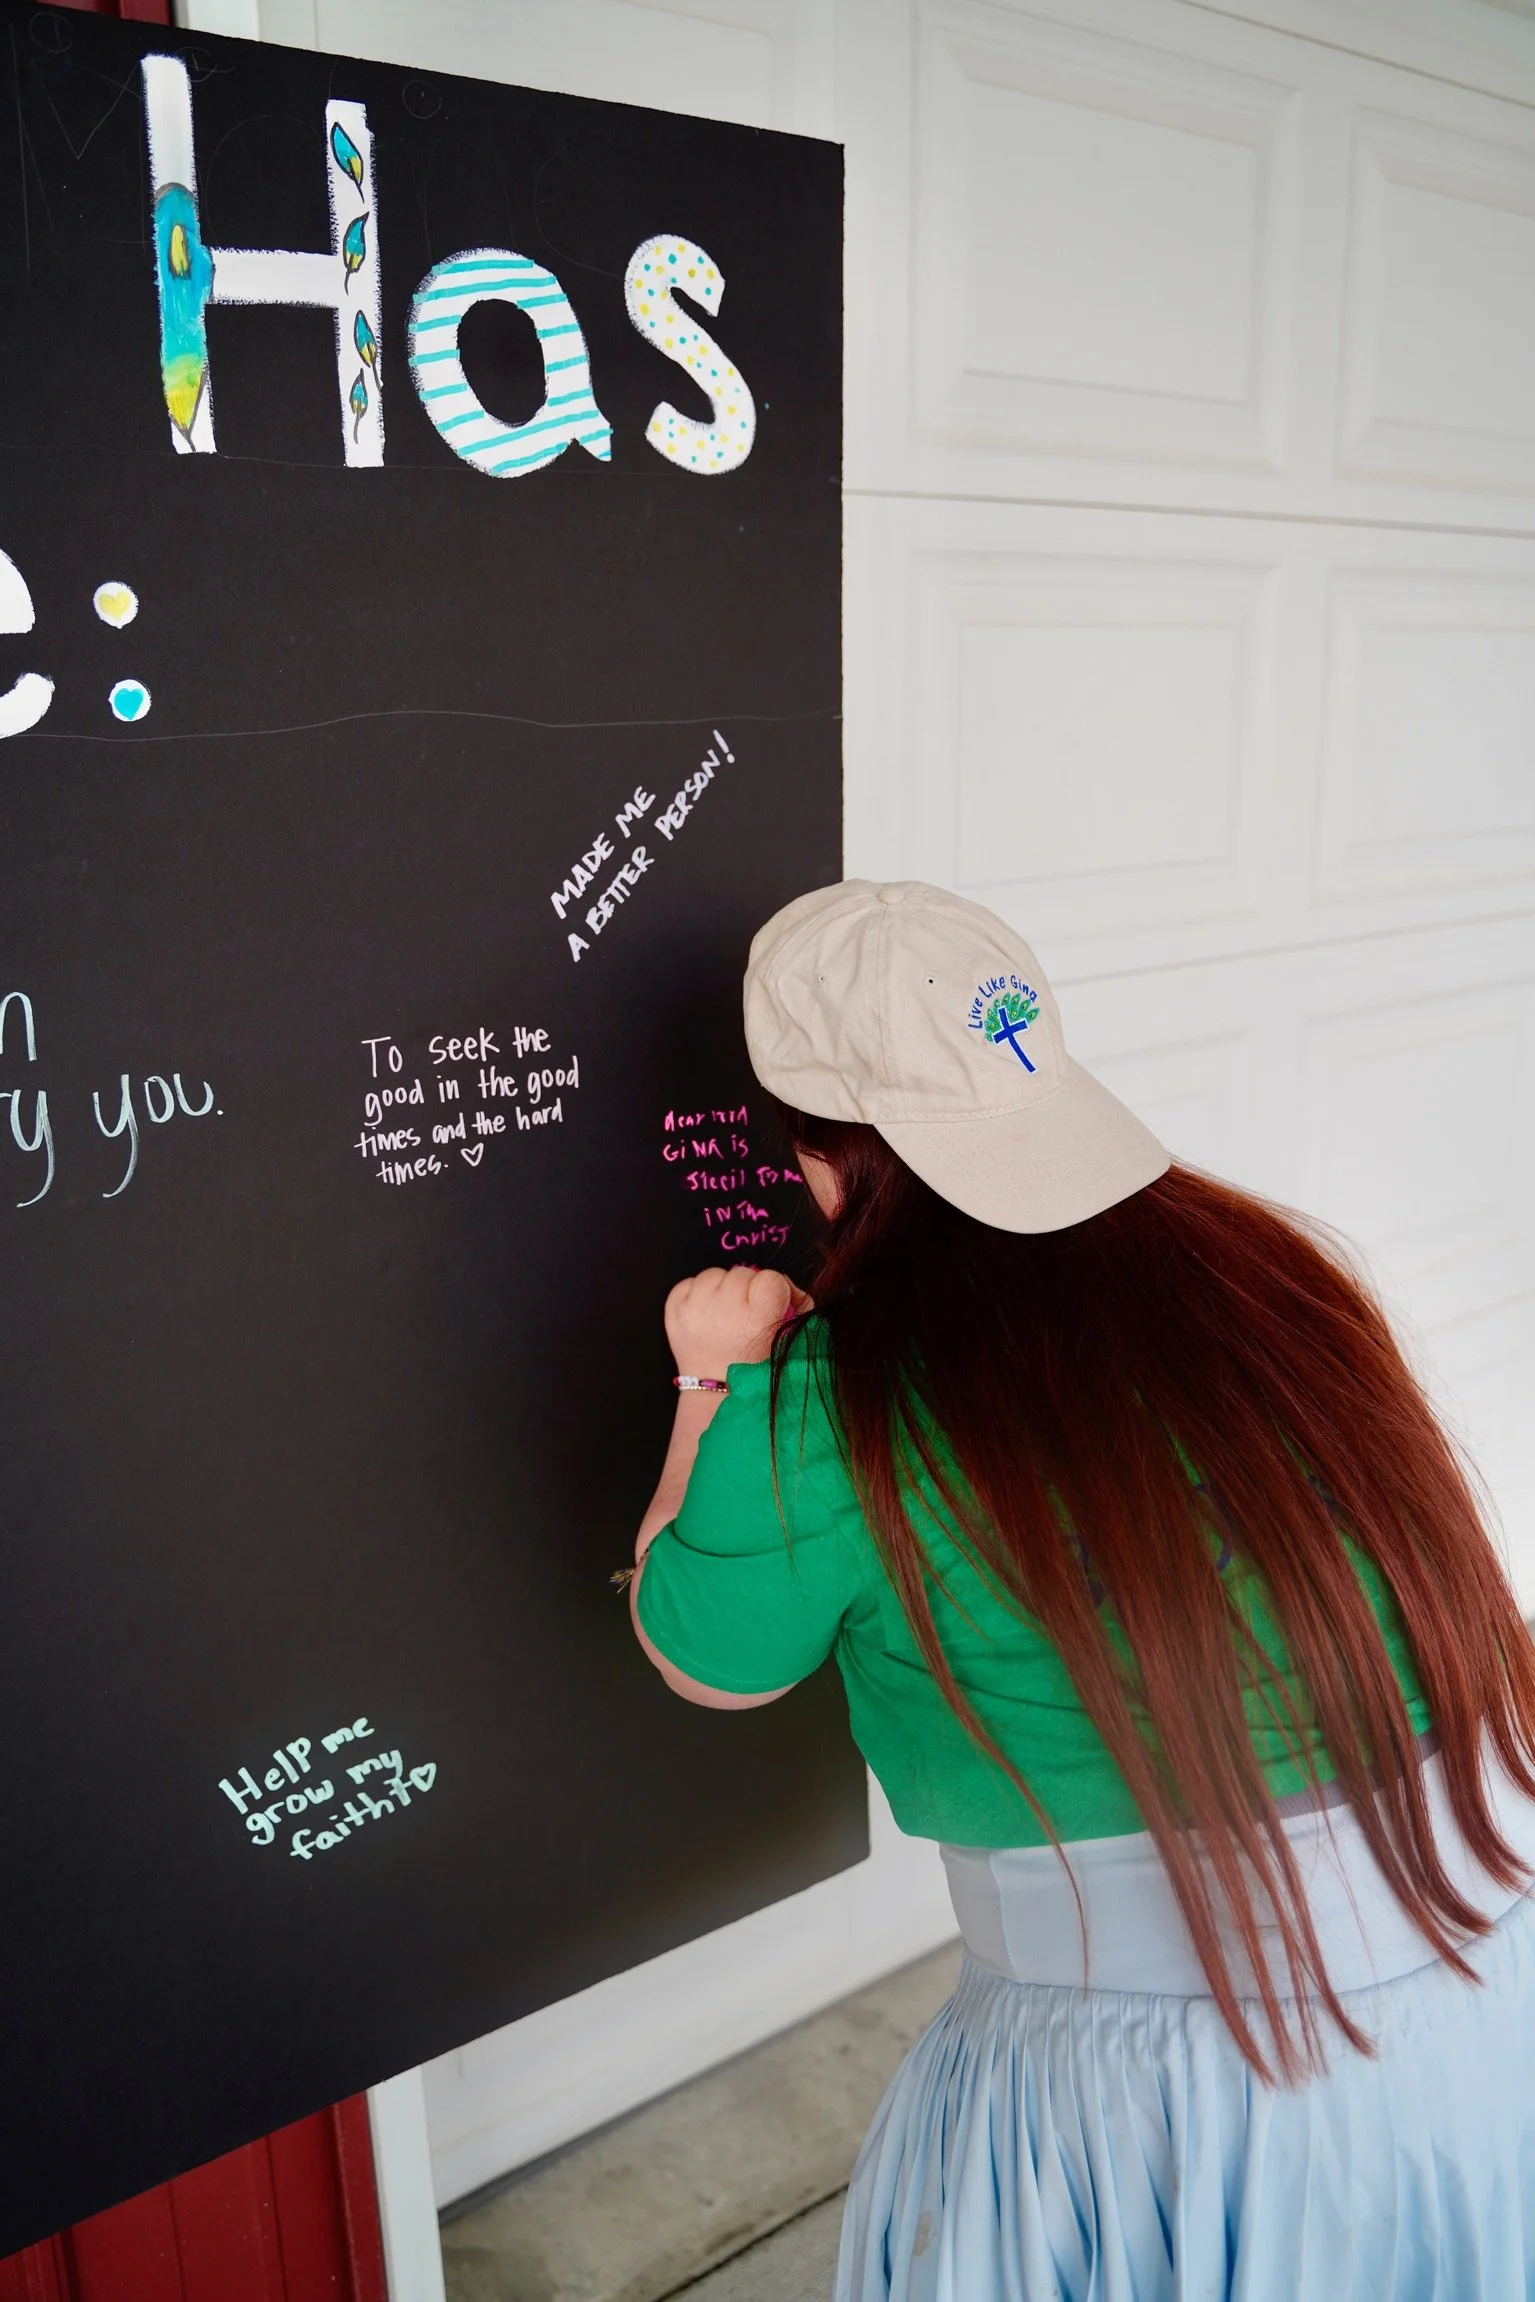 Has
e:
MADE ME
A BETTER PERSON!
Live Like Gina
n
y you.
To seek the
good in the good
times and the hard
times. ♡
GiNA is
iN The
Christ
Help me
grow my
faith ♡